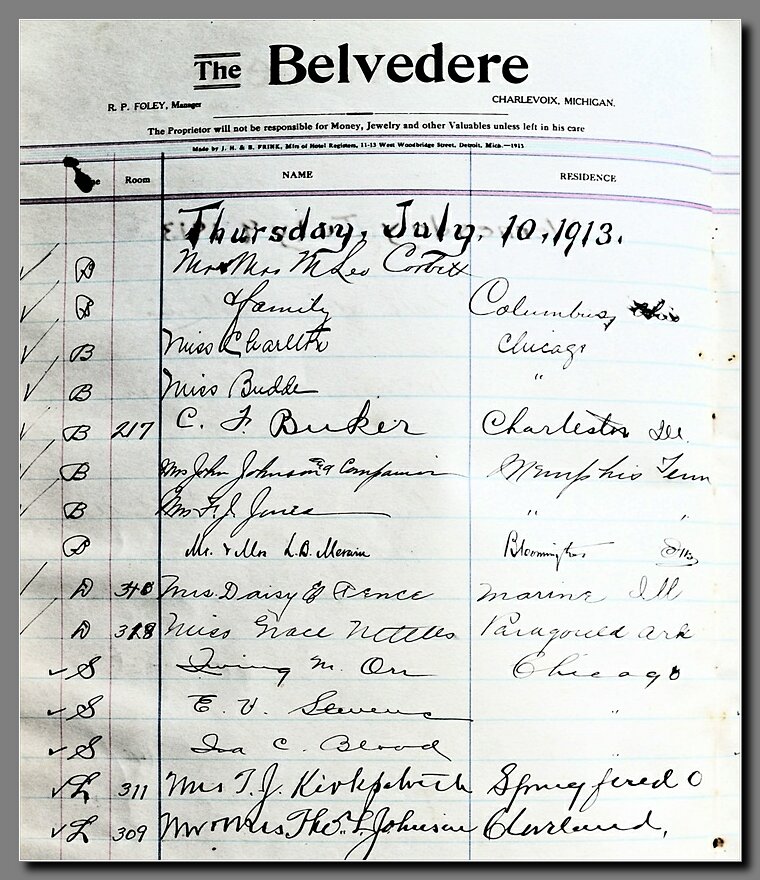 The Belvedere
R. P. FOLEY, Manager CHARLEVOIX, MICHIGAN.
The Proprietor will not be responsible for Money, Jewelry and other Valuables unless left in his care
Made by J. H. & B. FRINK, Mfrs of Hotel Registers, 11-13 West Woodbridge Street, Detroit, Mich.—1913
Room NAME RESIDENCE
Thursday, July, 10, 1913.
B Mr & Mrs M Leo Corbett
B & family Columbus, Ohio
B Miss Charlton Chicago
B Miss Budde "
B 217 C. F. Buker Charleston Ill.
B Mrs John Johnson and Companion Memphis Tenn
B Mrs F. J. Jones " "
B Mr. & Mrs L.B. Bloomington Ills
D Mrs. Daisy Pence Marine Ill
D 318 Miss Grace Nettles Paragould Ark
S Irving M. Orr Chicago
S E. V. Stevens "
S Ira C. Blood
L 311 Mrs T. J. Kirkpatrick Springfield O
L 309 Mr & Mrs Thos. L. Johnson Cleveland,